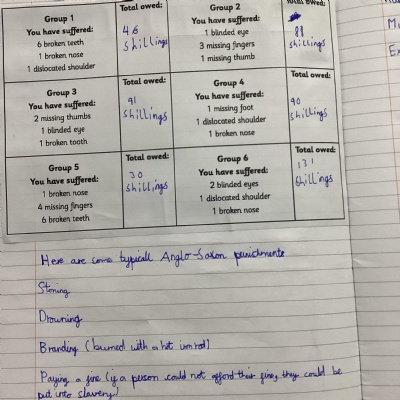 Group 1
You have suffered:
6 broken teeth
1 broken nose
1 dislocated shoulder
Total owed:
46
shillings
Group 2
You have suffered:
1 blinded eye
3 missing fingers
1 missing thumb
Total owed:
88
shillings
Group 3
You have suffered:
2 missing thumbs
1 blinded eye
1 broken tooth
Total owed:
91
shillings
Group 4
You have suffered:
1 missing foot
1 dislocated shoulder
1 broken nose
Total owed:
90
shillings
Group 5
You have suffered:
1 broken nose
4 missing fingers
6 broken teeth
Total owed:
30
shillings
Group 6
You have suffered:
2 blinded eyes
1 dislocated shoulder
1 broken nose
Total owed:
131
shillings
Here are some typicall Anglo-Saxon punishments
Stoning
Drowning
Branding (burned with a hot iron rod)
Paying a fine (if a person could not afford their fine, they could be
put into slavery)